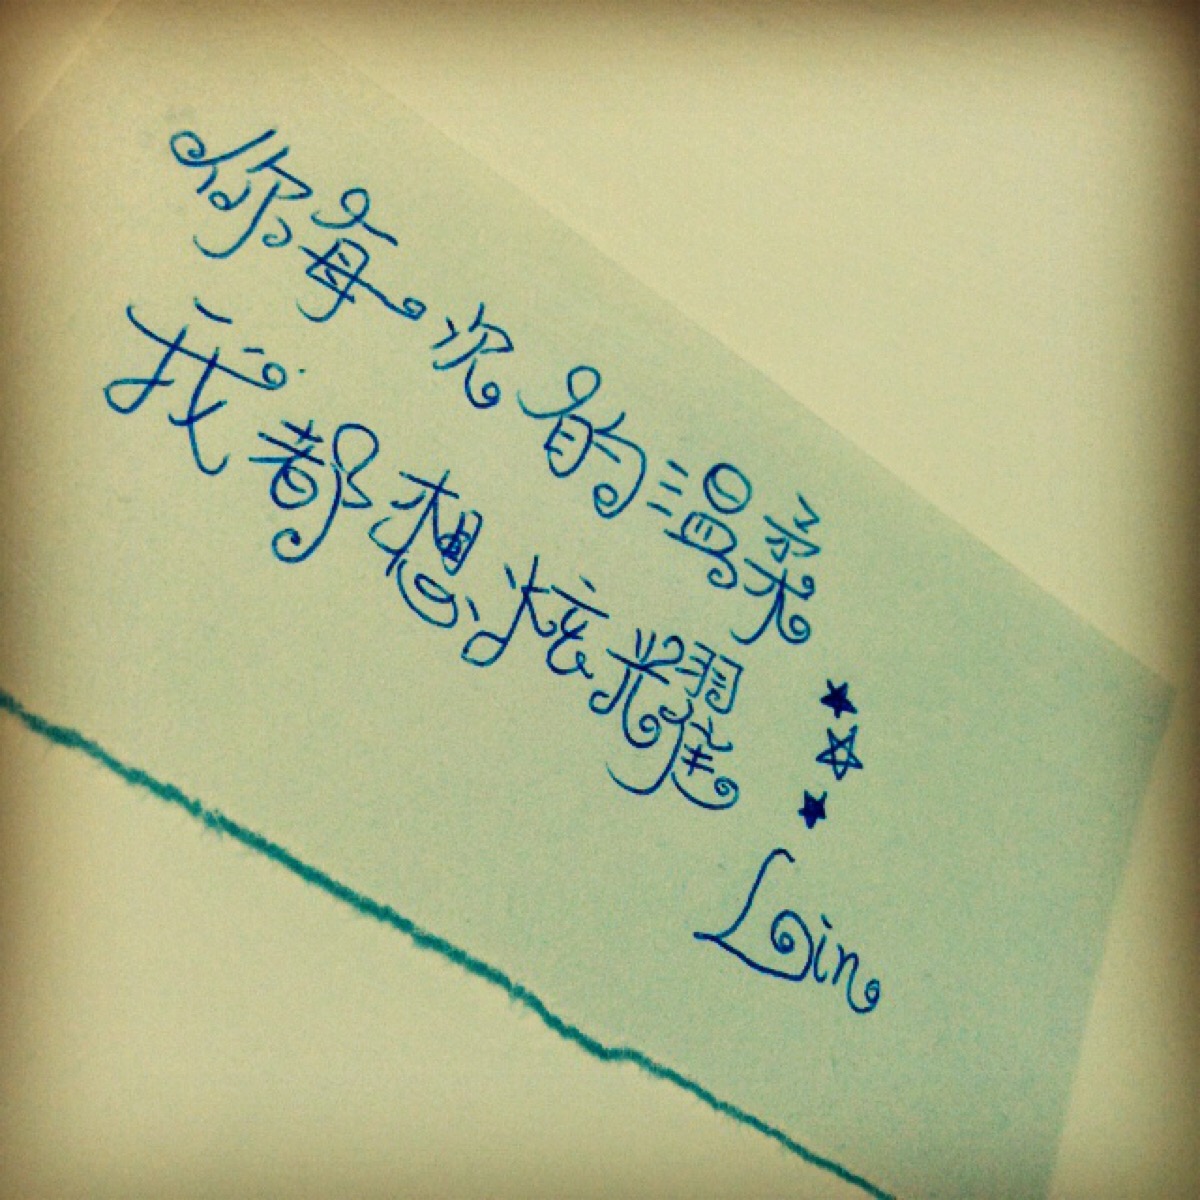 你每次的溫柔
我都想炫耀
Lin